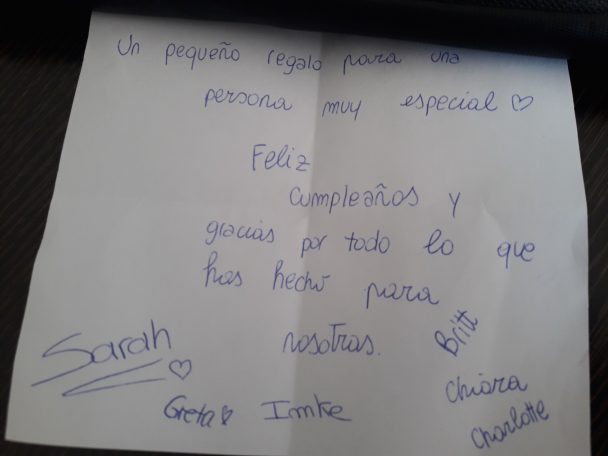 Un pequeño regalo para una
persona muy especial ♡
Feliz
cumpleaños y
gracias por todo lo que
has hecho para
nosotras.
Britt
Sarah ♡
Chiara
Greta ♡ Imke
Charlotte